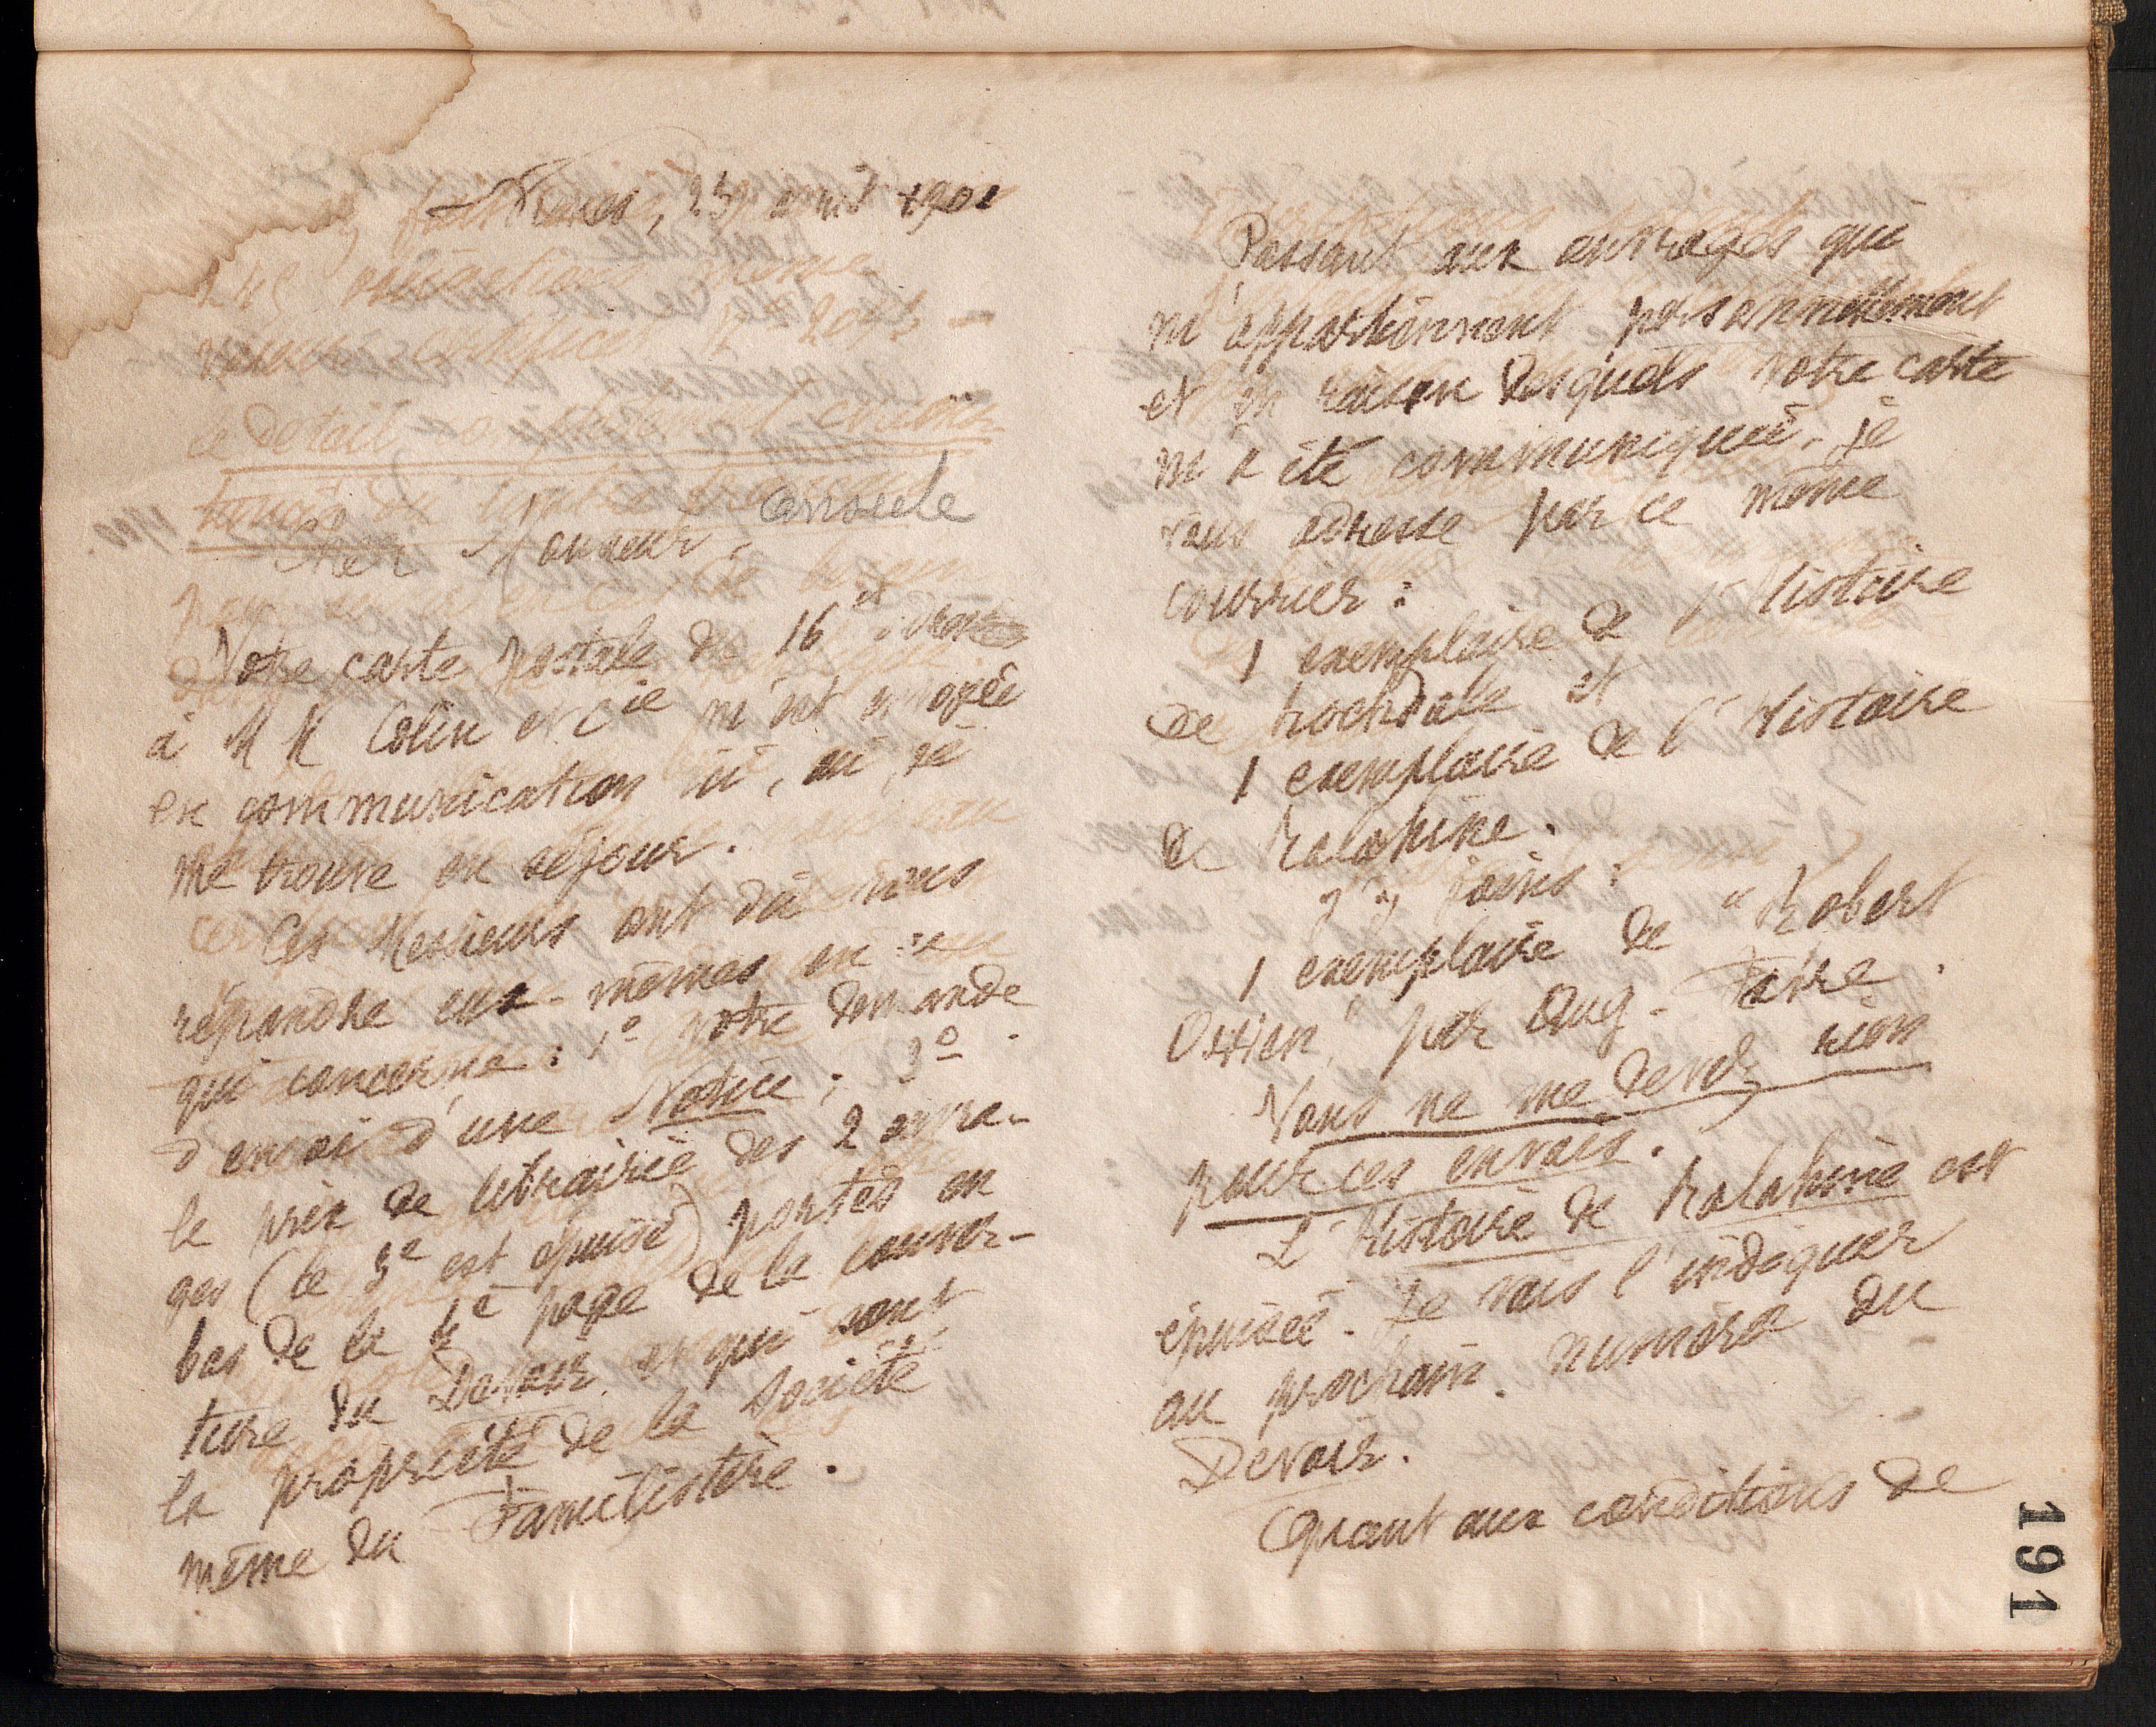 Nîmes, 23 avril 1901
Cher Monsieur, Canoule
Votre carte postale du 16 et
à MM Colin et Cie m'est envoyée
en communication ici, où je
me trouve en séjour.
Ces Messieurs ont dû vous
répondre eux-mêmes en ce
qui concerne : 1º votre demande
d'envoi d'une Notice ; 2º
le prix de librairie des 2 ouvra-
ges (le 3e est épuisé) portés en
bas de la 4e page de la couver-
ture du Devoir et qui sont
la propriété de la Société
même du Familistère.
Passant aux ouvrages qui
m'appartiennent personnellement
et en raison desquels votre carte
m'a été communiquée, je
vous adresse par ce même
courrier :
1 exemplaire de l'Histoire
de Rochdale et
1 exemplaire de l'Histoire
de Ralahine.
J'y joins :
1 exemplaire de "Robert
Owen" par Aug. Fabre.
Vous ne me devez rien
pour ces envois.
L'histoire de Ralahine est
épuisée. Je vais l'indiquer
au prochain numéro du
Devoir.
Quant aux conditions de
191